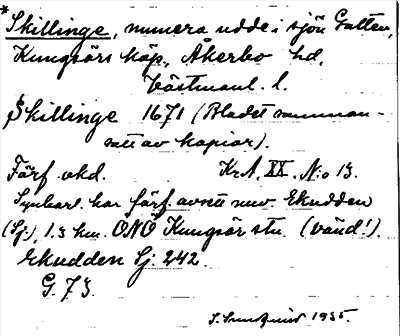 * Skillinge, numera udde i sjön Galten,
Kungsörs köp., Åkerbo hd,
Västmanl. l.
Skillinge 1671 (Bladet numman-
satt av kopior).
Förf. okd. KrA, XX. N:o 13.
har förf. avsett nuv. Ekudden
(Sj.), 1.3 km. ONO Kungsör stn. (vänd!).
Ekudden Sj. 242.
G. 73.
1935